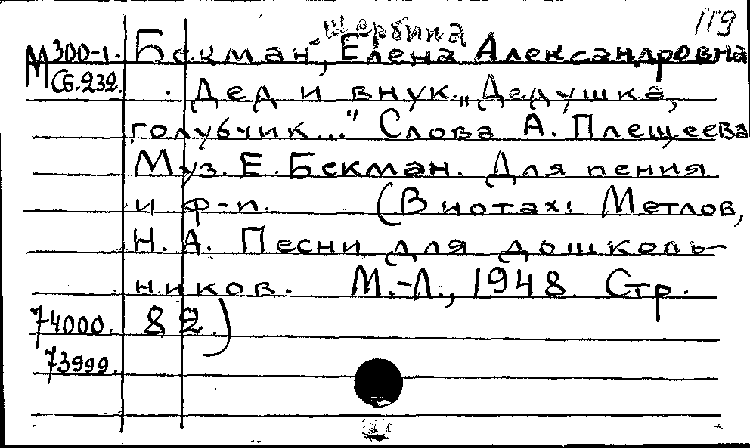 119
Щербина
М 300-1. Бекман-, Елена Александровна
Сб. 232. Дед и внук. „Дедушка,
голубчик..." Слова А. Плещеева
Муз. Е. Бекман. Для пения
и ф-п. (В нотах: Метлов,
Н. А. Песни для дошколь-
ников. М.-Л., 1948 Стр.
74000. 82.)
73999.